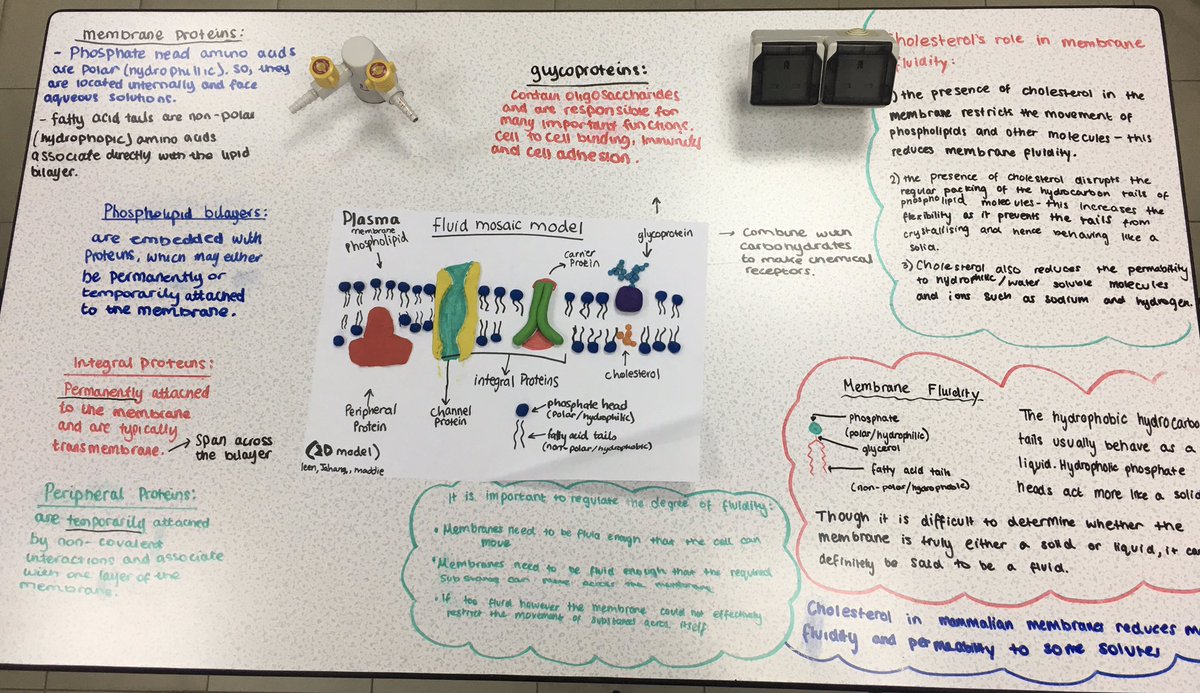 Membrane proteins:
- Phosphate head amino acids
are polar (hydrophilic). So, they
are located internally and face
aqueous solutions.
- fatty acid tails are non-polar
(hydrophopic) amino acids
associate directly with the lipid
bilayer.
Phospholipid bilayers:
are embedded with
Proteins, which may either
be permanently or
temporarily attached
to the membrane.
Integral proteins:
Permanently attached
to the membrane
and are typically
transmembrane.
Span across
the bilayer
Peripheral Proteins:
are temporarily attached
by non-covalent
interactions and associate
with one layer of the
membrane.
glycoproteins:
contain oligosaccharides
and are responsible for
many important functions.
cell to cell binding, immunity
and cell adhesion.
Plasma
membrane
phospholipid
Fluid mosaic model
carrier
Protein
glycoprotein
→ Combine with
carbohydrates
to make chemical
receptors.
integral Proteins
cholesterol
Peripheral
Protein
channel
Protein
phosphate head
(polar/hydrophilic)
fatty acid tails
(non-polar/hydrophobic)
(2D model)
leen, maddie
It is important to regulate the degree of fluidity:
• Membranes need to be fluid enough that the cell can
move
• Membranes need to be fluid enough that the required
can move across the membrane
• If too fluid however the membrane could not effectively
restrict the movement of across itself
Cholesterol's role in membrane
fluidity:
1) the presence of cholesterol in the
membrane restricts the movement of
phospholipids and other molecules - this
reduces membrane fluidity.
2) the presence of cholesterol disrupts the
regular packing of the hydrocarbon tails of
phospholipid molecules - this increases the
flexibility as it prevents the tails from
crystallising and hence behaving like a
solid.
3) Cholesterol also reduces the permability
to hydrophilic/water soluble molecules
and ions such as sodium and hydrogen.
Membrane Fluidity
phosphate
(polar/hydrophilic)
glycerol
fatty acid tails
(non-polar/hydrophobic)
The hydrophobic hydrocarbo
tails usually behave as a
liquid. Hydrophilic phosphate
heads act more like a solid
Though it is difficult to determine whether the
membrane is truly either a solid or liquid, it ca
definitely be said to be a fluid.
Cholesterol in mammalian membranes reduces m
fluidity and permeability to some solutes